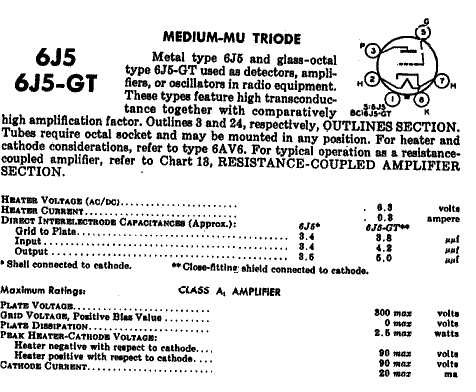 MEDIUM-MU TRIODE
6J5
6J5-GT
Metal type 6J5 and glass-octal
type 6J5-GT used as detectors, ampli-
fiers, or oscillators in radio equipment.
These types feature high transconduc-
tance together with comparatively
high amplification factor. Outlines 3 and 24, respectively, OUTLINES SECTION.
Tubes require octal socket and may be mounted in any position. For heater and
cathode considerations, refer to type 6AV6. For typical operation as a resistance-
coupled amplifier, refer to Chart 13, RESISTANCE-COUPLED AMPLIFIER
SECTION.
G
5
P
3
H
2
7
H
1
8
K
S:6J5
BC:6J5-GT
HEATER VOLTAGE (AC/DC) 6.3 volts
HEATER CURRENT 0.3 ampere
DIRECT INTERELECTRODE CAPACITANCES (Approx.): 6J5* 6J5-GT**
Grid to Plate 3.4 3.8 μμf
Input 3.4 4.2 μμf
Output 3.6 5.0 μμf
* Shell connected to cathode. **Close-fitting shield connected to cathode.
Maximum Ratings: CLASS A1 AMPLIFIER
PLATE VOLTAGE 300 max volts
GRID VOLTAGE, Positive Bias Value 0 max volts
PLATE DISSIPATION 2.5 max watts
PEAK HEATER-CATHODE VOLTAGE:
Heater negative with respect to cathode 90 max volts
Heater positive with respect to cathode 90 max volts
CATHODE CURRENT 20 max ma